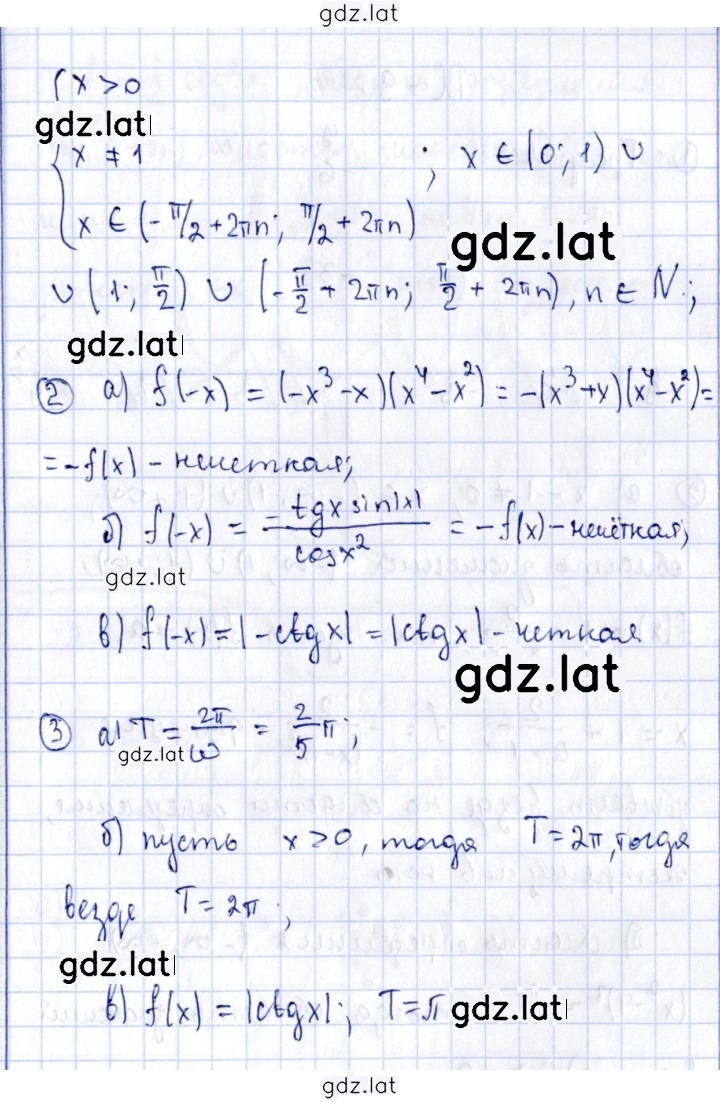 gdz.lat
{ x > 0
gdz.lat
x ≠ 1 ; x ∈ (0; 1) ∪
x ∈ (-π/2 + 2πn; π/2 + 2πn)
gdz.lat
∪ (1; π/2) ∪ (-π/2 + 2πn; π/2 + 2πn), n ∈ N;
gdz.lat
② а) f(-x) = (-x³ - x)(x⁴ - x²) = -(x³ + x)(x⁴ - x²) =
= -f(x) - нечетная;
б) f(-x) = -tgx sin|x| / cosx² = -f(x) - нечётная;
gdz.lat
в) f(-x) = |-ctgx| = |ctgx| - четная
gdz.lat
③ а) T = 2π/ω = 2/5 π;
gdz.lat
б) пусть x > 0, тогда T = 2π, тогда
везде T = 2π;
gdz.lat
в) f(x) = |ctgx|; T = π
gdz.lat
gdz.lat